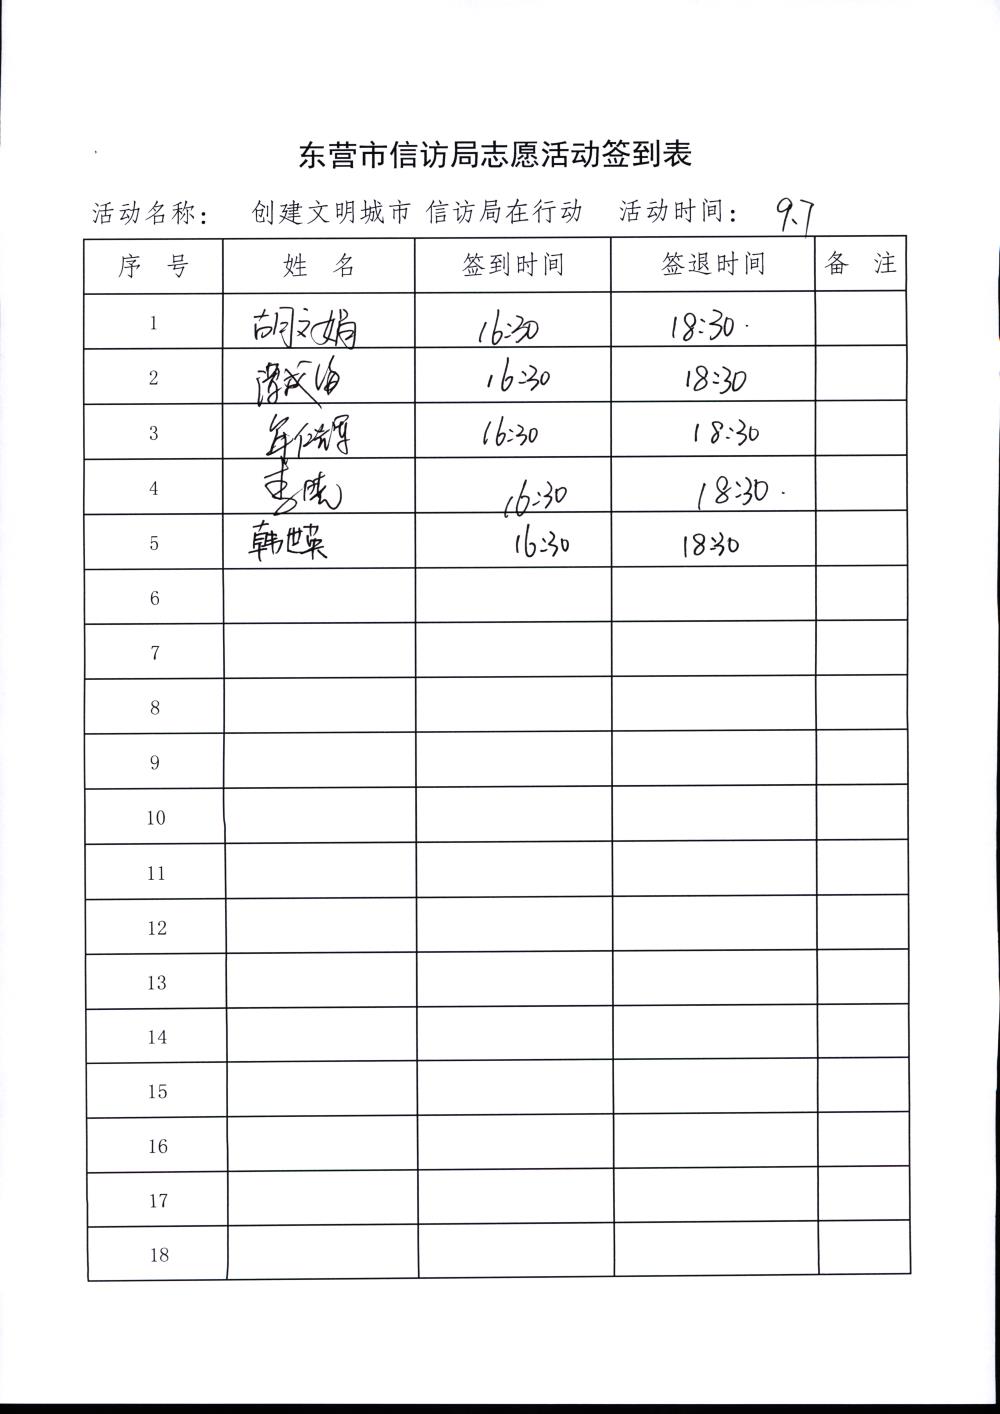 东营市信访局志愿活动签到表
活动名称： 创建文明城市 信访局在行动 活动时间： 9.7
序 号 姓 名 签到时间 签退时间 备 注
1 胡文娟 16:30 18:30
2 16:30 18:30
3 16:30 18:30
4 16:30 18:30
5 韩世英 16:30 18:30
6
7
8
9
10
11
12
13
14
15
16
17
18